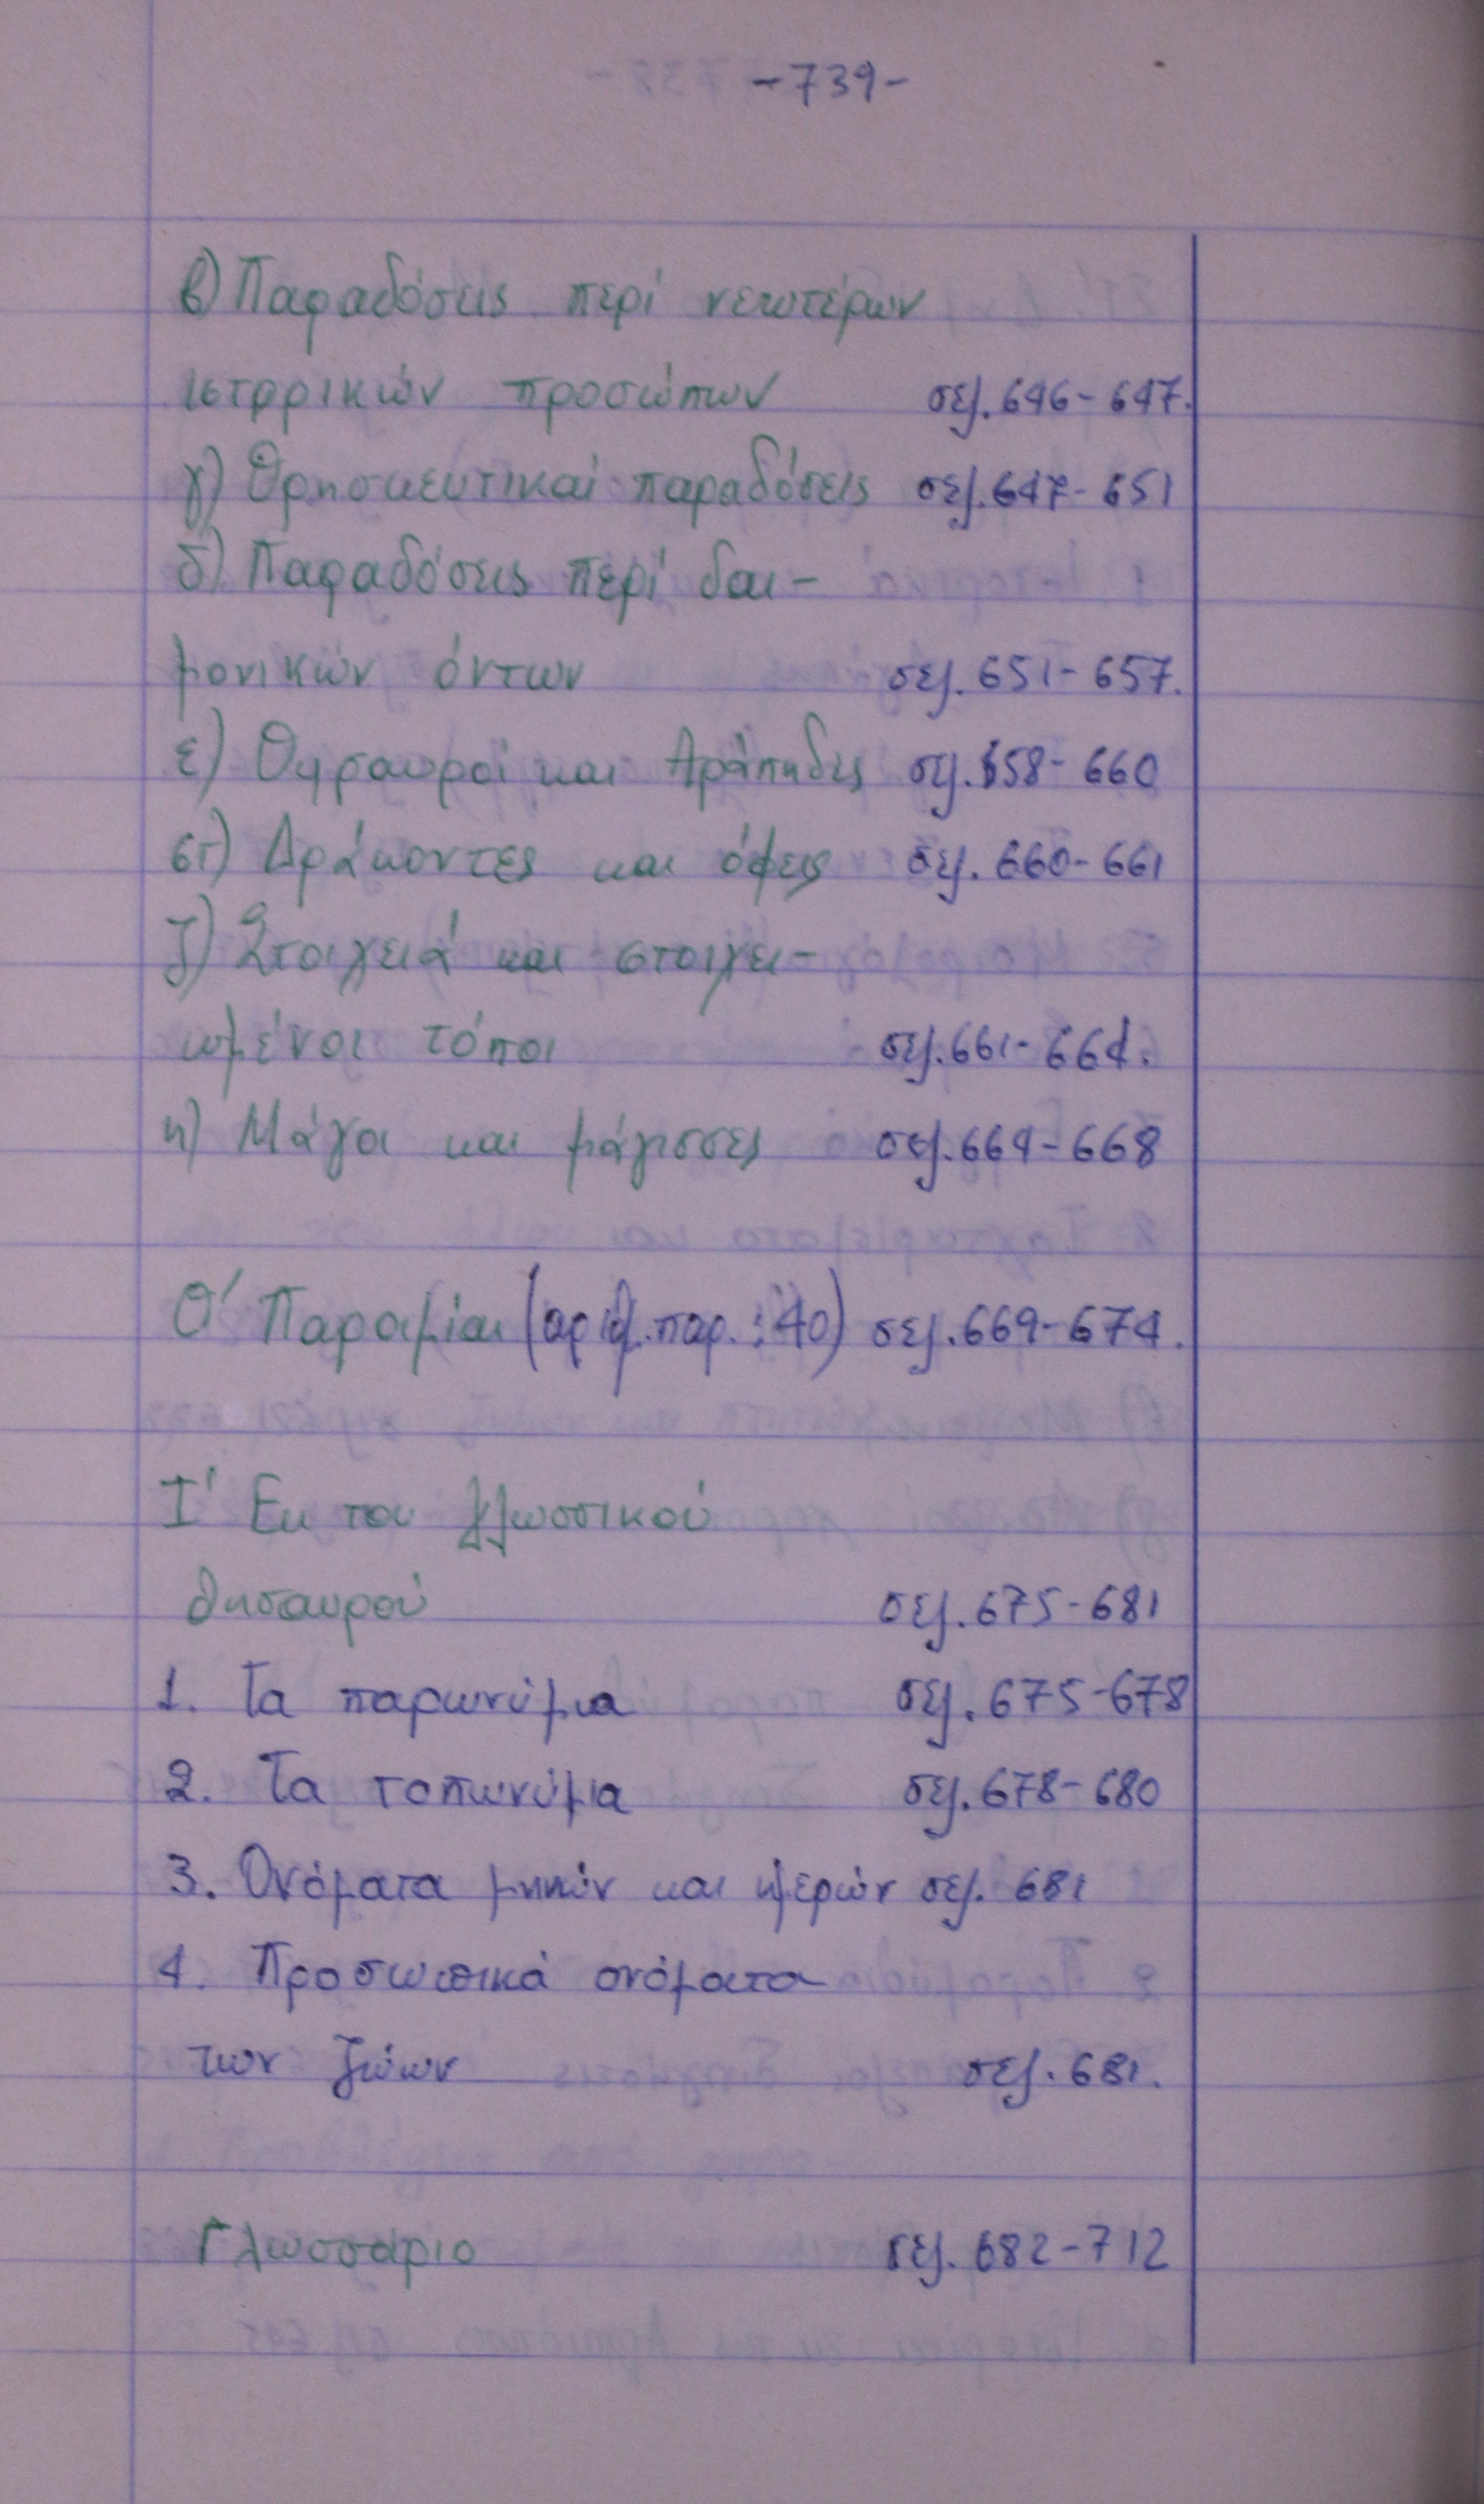 -739-
β) Παραδόσεις περί νεωτέρων
ιστορικών προσώπων σελ. 646-647.
γ) Θρησκευτικαί παραδόσεις σελ. 647-651
δ) Παραδόσεις περί δαι-
μονικών όντων σελ. 651-657.
ε) Θησαυροί και Αράπηδες σελ. 658-660
στ) Δράκοντες και όφεις σελ. 660-661
ζ) Στοιχειά και στοιχει-
ωμένοι τόποι σελ. 661-664.
η) Μάγοι και μάγισσες σελ. 664-668
Θ' Παροιμίαι (αριθ. παρ.: 40) σελ. 669-674.
Ι' Εκ του γλωσσικού
θησαυρού σελ. 675-681
1. Τα παρωνύμια σελ. 675-678
2. Τα τοπωνύμια σελ. 678-680
3. Ονόματα μηνών και ημερών σελ. 681
4. Προσωπικά ονόματα
των ζώων σελ. 681.
Γλωσσάριο σελ. 682-712